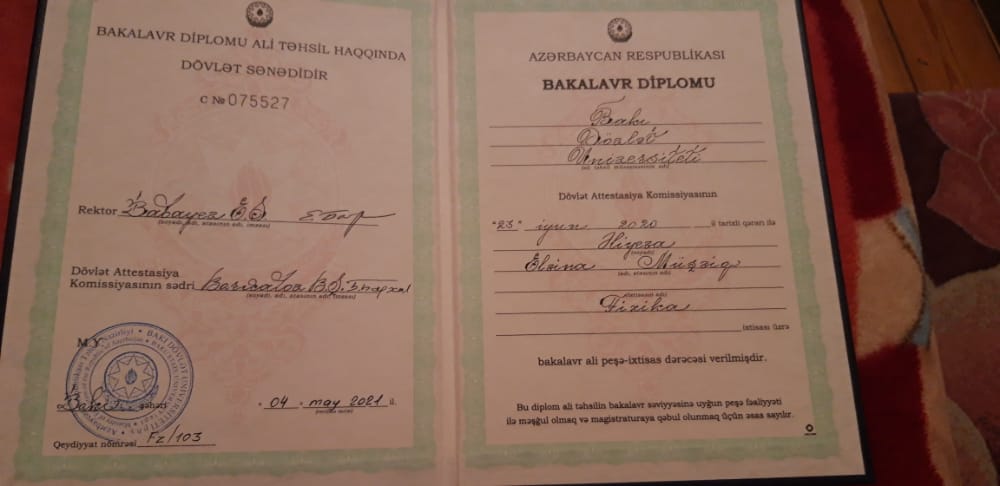 BAKALAVR DİPLOMU ALİ TƏHSİL HAQQINDA
DÖVLƏT SƏNƏDİDİR
C № 075527
Rektor Babayev E.S.
(soyadı, adı, atasının adı, imzası)
Dövlət Attestasiya
Komissiyasının sədri B.S.
(soyadı, adı, atasının adı, imzası)
M.Y.
BAKI DÖVLƏT UNİVERSİTETİ
Bakı şəhəri
" 04 " may 2021 il.
Qeydiyyat nömrəsi Fz/103
AZƏRBAYCAN RESPUBLİKASI
BAKALAVR DİPLOMU
Bakı
Dövlət
Universiteti
(ali təhsil müəssisəsinin adı)
Dövlət Attestasiya Komissiyasının
"23" iyun 2020 -ü tarixli qərarı ilə
Elvina Müşviq
(adı, atasının adı)
(ixtisasın adı)
Fizika
ixtisası üzrə
bakalavr ali peşə-ixtisas dərəcəsi verilmişdir.
Bu diplom ali təhsilin bakalavr səviyyəsinə uyğun peşə fəaliyyəti
ilə məşğul olmaq və magistraturaya qəbul olunmaq üçün əsas sayılır.